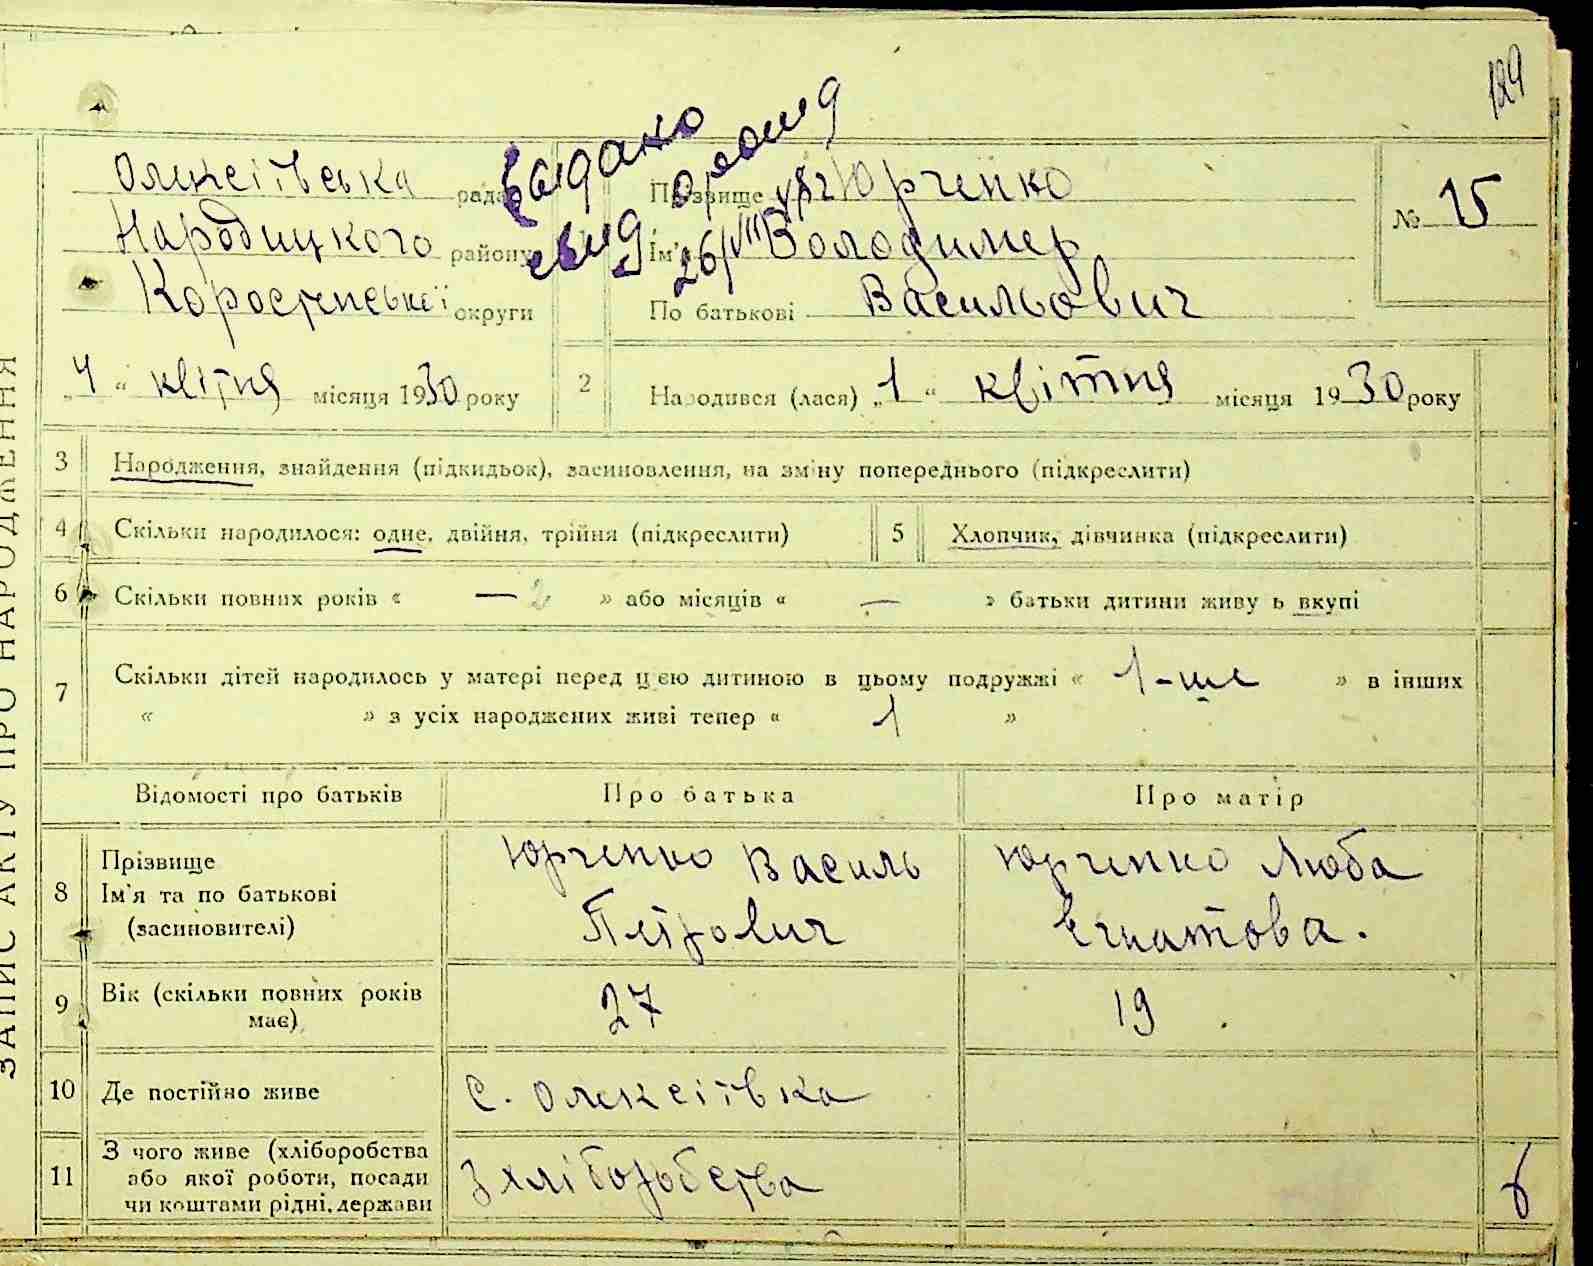 129
Олексіївська рада
Народицького району
Коростенської округи
Прізвище Юрченко
Ім'я Володимер
По батькові Васильович
№ 15
Видано
свид
26/VIII
„4“ квітня місяця 1930 року
2 Народився (лася) „1“ квітня місяця 1930 року
ЗАПИС АКТУ ПРО НАРОДЖЕННЯ
3 Народження, знайдення (підкидьок), засиновлення, на зміну попереднього (підкреслити)
4 Скільки народилося: одне, двійня, трійня (підкреслити)
5 Хлопчик, дівчинка (підкреслити)
6 Скільки повних років « — 2 » або місяців « — » батьки дитини живу ь вкупі
7 Скільки дітей народилось у матері перед цією дитиною в цьому подружжі « 1-ше » в інших
« » з усіх народжених живі тепер « 1 »
Відомості про батьків Про батька Про матір
8 Прізвище
Ім'я та по батькові
(засиновителі)
Юрченко Василь
Петрович
Юрченко Люба
Егнатова.
9 Вік (скільки повних років
має)
27
19
10 Де постійно живе
с. Олексіївка
11 З чого живе (хліборобства
або якої роботи, посади
чи коштами рідні, держави
З хліборобства